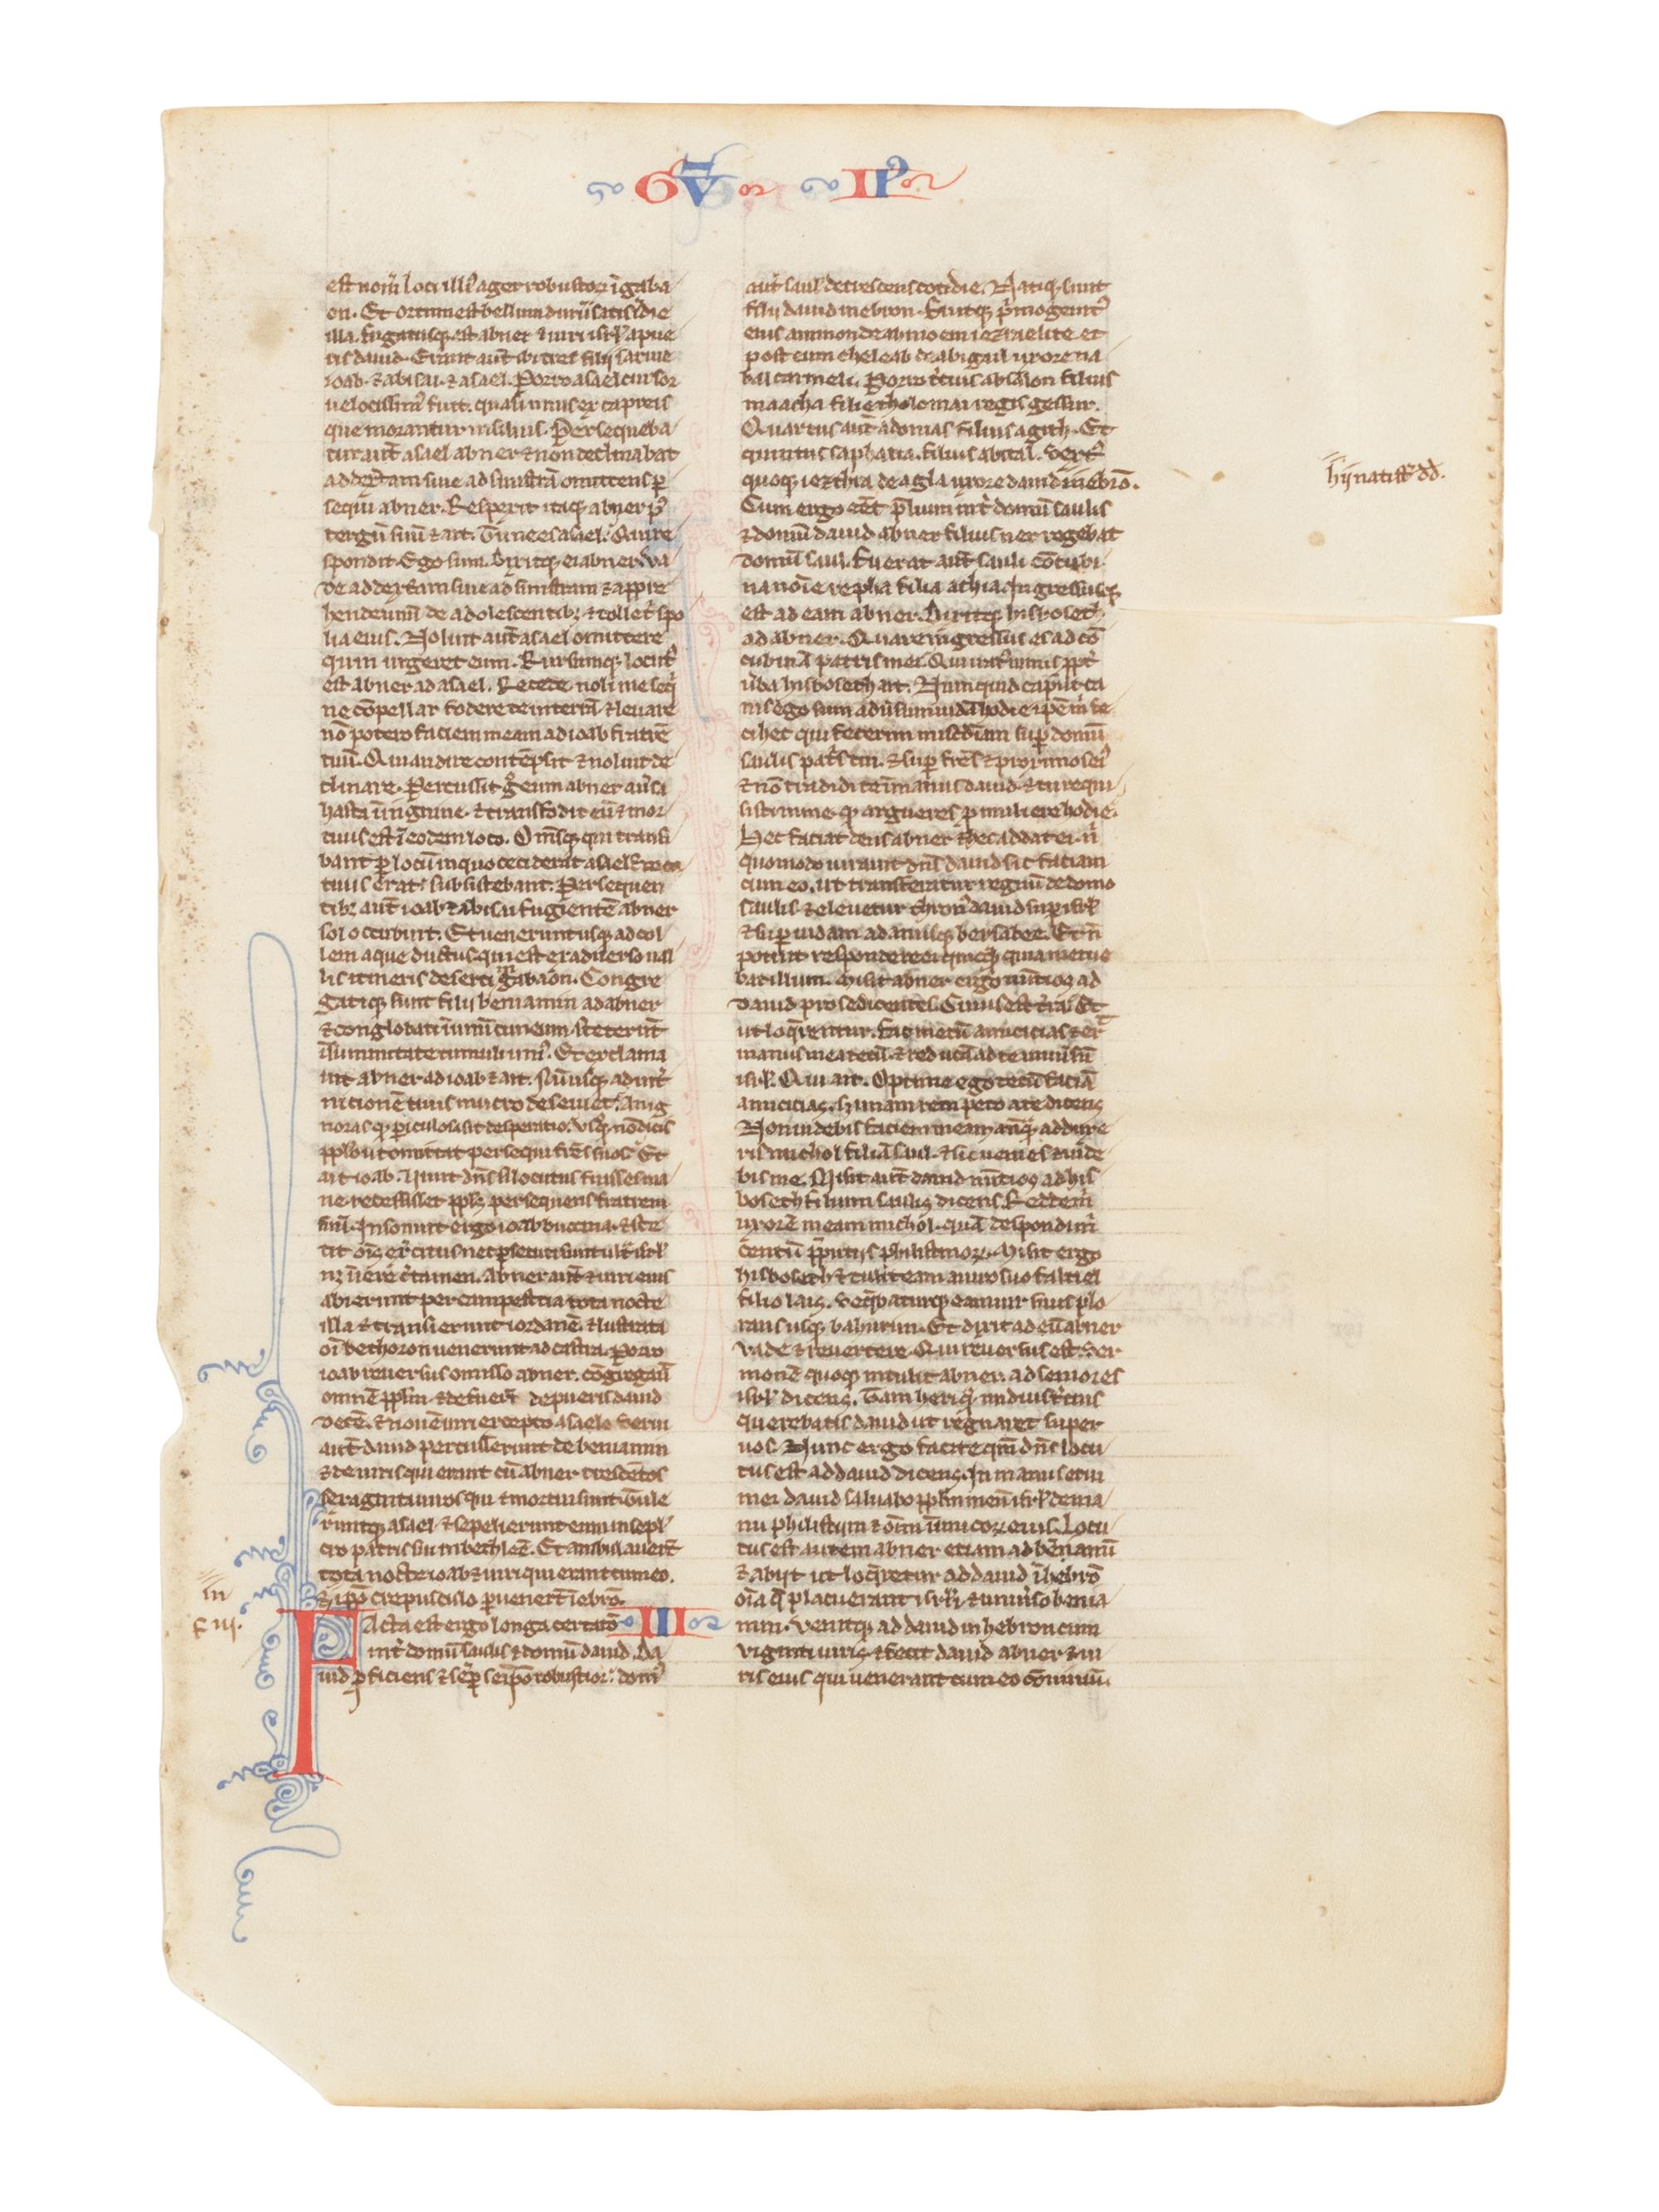 GV II P
est nom̄ loci illi᾽ ager robustoꝝ ī gaba
on. Et ortum est bellum durū satis ī die
illa. fugatusqꝫ est abner & uiri isrl̄ a pue
ris dauid. Erant aut̄ ibi tres filij saruie
ioab. & abisai. & asael. Porro asael cursor
uelocissim᾽ fuit. quasi unus ex capreis
que morantur in siluis. Persequeba
tur aut̄ asael abner & non declinabat
ad dext̄am siue ad sinistrā omittens ꝑ
sequi abner. Respexit itaqꝫ abner p᾽
tergū suū & ait. Tu ne es asael. Qui re
spondit. Ego sum. Dixitqꝫ ei abner. Va
de ad dextram siue ad sinistram & appre
hende unū de adolescentibꝫ & tolle t᾽ spo
lia eius. Noluit aut̄ asael omittere
quin urgeret eum. Rursumqꝫ locut᾽
est abner ad asael. Recede noli me seq̄
ne cōpellar fodere te in terrā. & leuare
nō potero faciem meam ad ioab fratrē
tuū. Qui audire contēpsit & noluit de
clinare. Percussit g᾽ eum abner au᾽sa
hasta in īguine. & transfodit eū & mor
tuus est ī eodem loco. Om̄sqꝫ qui transi
bant ꝑ locū in quo ceciderat asael & mor
tuus erat subsistebant. Persequen
tibꝫ aut̄ ioab & abisai fugientē abner
sol occubuit. Et uenerunt usqꝫ ad col
lem aque ductus. qui est ex aduerso ual
lis itineris deserti in gabaon. Congre
gatiqꝫ sunt filij beniamin ad abner
& conglobati ī unū cuneum steterūt
ī summitate tumuli uni᾽. Et exclama
uit abner ad ioab & ait. Nū usqꝫ ad int̄
nicionē tuus mucro deseuiet. An ig
noras qꝫ periculosa sit desperatio. Vsqꝫ q᾽ nō dicis
pplo ut omittat persequi frēs suos. Et
ait ioab. Viuit dn̄s si locutus fuisses ma
ne. recessisset ppls persequens fratrem
suū. Insonuit ergo ioab buccina. & ste
tit om̄is exercitus nec ꝑsecuti sunt ultra isrl̄
nꝫ iniere c̄tamen. Abner aut̄ & uiri eius
abierunt per campestria tota nocte
illa & transierunt iordanē. & lustrata
om̄i bethoron uenerunt ad castra. Porro
ioab reuersus omisso abner. cōgregauit
omnē pplm. & defuert̄ de pueris dauid
decē. & nouē uiri excepto asaele. Serui
aut̄ dauid percusserunt de beniamin
& de uiris qui erant cū abner trescētos
sexaginta uiros qui & mortui sunt. Tule
runtqꝫ asael. & sepelierunt eum in sepl᾽
cro patris sui in bethleē. Et ambulauert̄
tota nocte ioab & uiri qui erant cum eo.
& ī ip̄o crepusculo ꝑuenert̄ ī ebrō.
III
Facta est ergo longa certatō
int̄ domū saulis & domū dauid. Da
uid ꝓficiens & sēꝑ seip̄o robustior. dom᾽
aut̄ saul᾽ decrescens cotidie. Natiqꝫ sunt
filij dauid in ebron. Fuitqꝫ p᾽mogenit᾽
eius amnon de achinoem iezraelite. et
post eum cheleab de abigail uxore na
bal carmeli. Porro t᾽cius absalon filius
maacha filie tholomai regis gessur.
Quartus aut̄ adonias filius agith. Et
quintus saphatia. filius abital. Sext᾽
quoqꝫ iezthra de agla uxore dauid in ebrō.
Cum ergo eēt p̄lium int̄ domū saulis
& domū dauid abner filius ner regebat
domū saul. Fuerat aut̄ sauli cōcubi
na noīe repha filia achia. Ingressusqꝫ
est ad eam abner. Dixitqꝫ hisboseth
ad abner. Quare ingressus es ad cō
cubinā patris mei. Qui irat᾽ nimis ppt̄
u᾽ba hisboseth ait. Numquid caput ca
nis ego sum aduersum iudā hodie. ip̄e m̄ fe
ci hec qui fecerim mis̄cdiam suꝑ domū
saulis pat᾽s tui. & suꝑ frēs & proximos ei᾽
& nō tradidi te ī manus dauid. & tu requi
sisti in me. qꝫ argueres ꝓ muliere hodie.
Hec faciat deus abner & hec addat ei. n̄
quomodo iurauit dn̄s dauid sic faciam
cum eo. ut transferatur regnū de domo
saulis. & eleuetur thron᾽ dauid suꝑ isrl̄
& suꝑ iudam a dan usqꝫ bersabee. Et n̄
potuit respondere ei q̄cqᷓ quia metue
bat illum. Misit abner ergo nūtios ad
dauid pro se dicentes. Cuius est tr̄a. Et
ut loq̄rentur. Fac mecū amicicias & er᾽t
manus mea tecū. & reducā ad te uniu᾽sū
isrl̄. Qui ait. Optime ego tecū faciā
amicicias. Sꝫ unam rem peto a te dicens
Non uidebis faciem meam anteqᷓ adduxe
ris michol filiā saul. & sic uenies & uide
bis me. Misit aut̄ dauid nūtios ad his
boseth filium saulis dicens. Redde m̄
uxorē meam michol. quā despondi m̄
centū p̄putijs philistinoꝝ. Misit ergo
hisboseth & tulit eam a uiro suo faltiel
filio lais. Seq̄baturqꝫ eam uir suus plo
rans usqꝫ bahurim. Et dixit ad eū abner
Vade & reuertere. Qui reuersus est. Ser
monē quoqꝫ intulit abner. ad seniores
isrl̄ dicens. Tam heri qᷓ nudiust᾽cius
querebatis dauid ut regnaret super
uos. Nunc ergo facite qm̄ dn̄s locu
tus est ad dauid dicens. In manu serui
mei dauid saluabo pplm meū isrl̄ de ma
nu philistijm & om̄iū inimicoꝝ eius. Locu
tus est autem abner etiam ad beniamī
& abijt ut loq̄retur ad dauid ī hebrō
om̄ia q̄ placuerant isrl̄i & uniu᾽so benia
min. Venitqꝫ ad dauid in hebron cum
viginti uiris. & fecit dauid abner & ui
ris eius qui uenerant cum eo cōuiuiū.
hij nati st̄ dd.